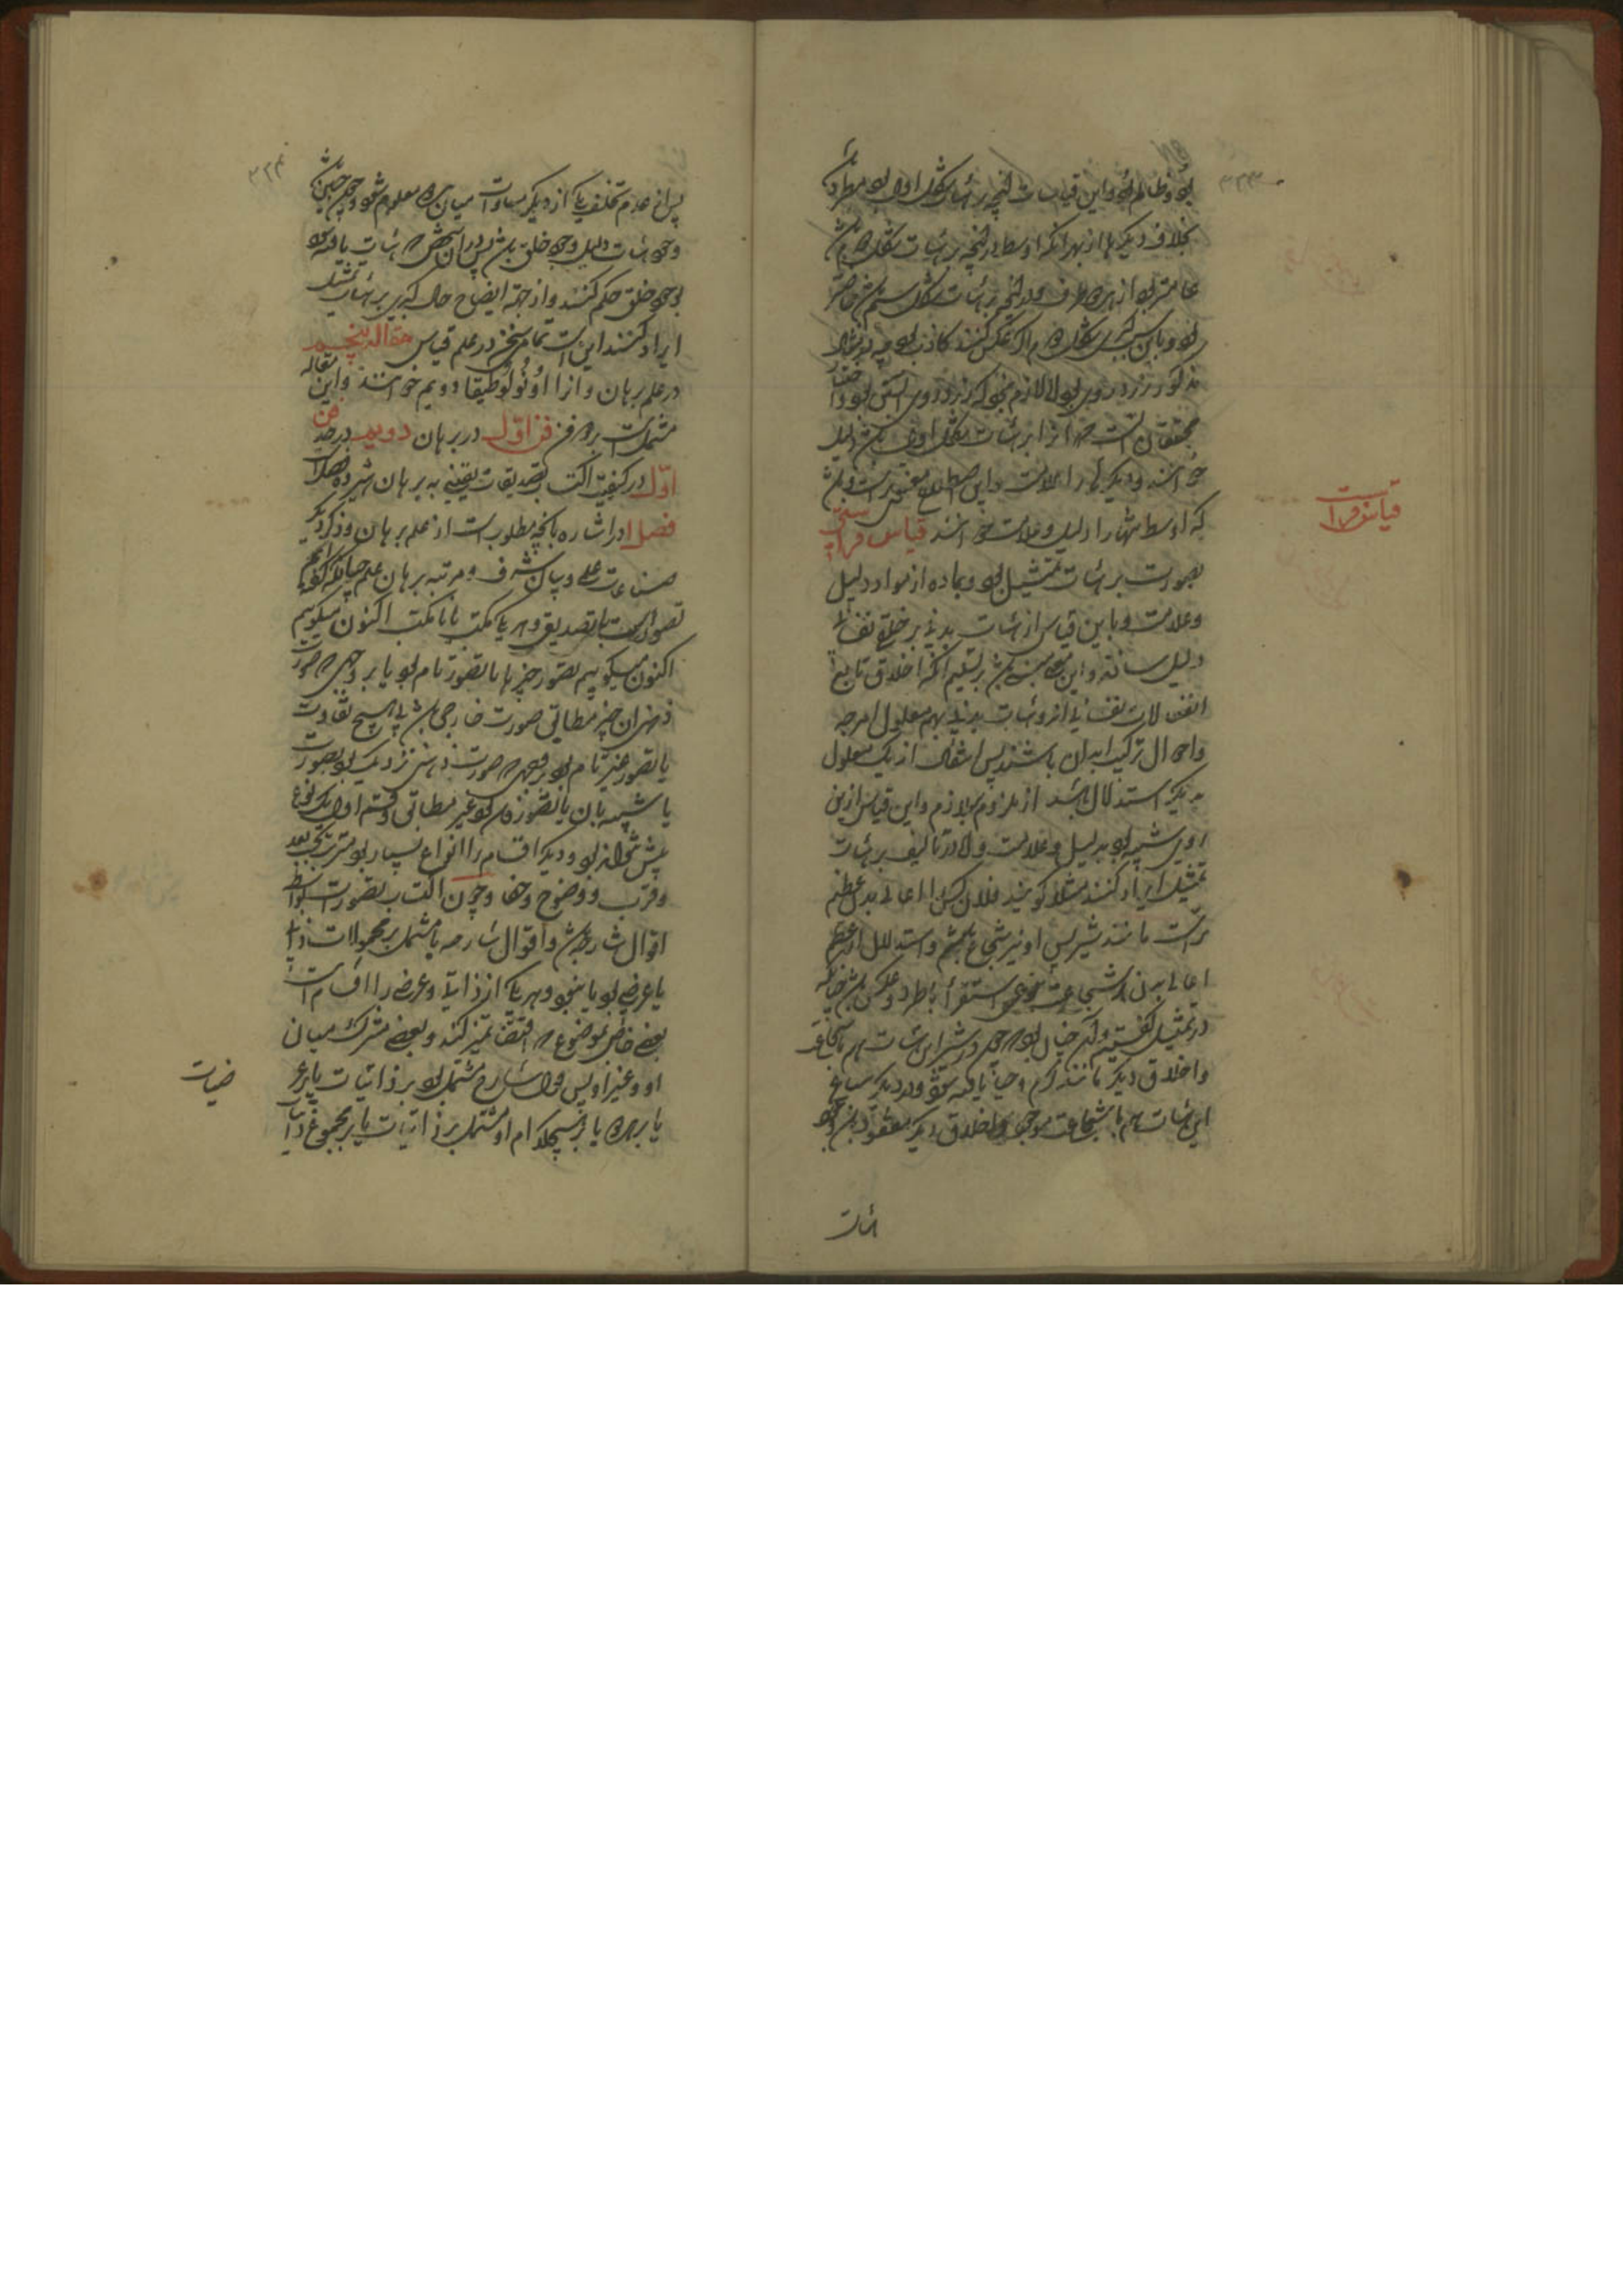 بود و ظالم بود و این قیاسات آنچه بر هیأت شکل اول بود مطرد باشد
بخلاف دیگرها از بهر آنکه اوسط در آنچه بر هیأت شکل دوم باشد
عامتر بود از هر دو طرف و در آنچه بر هیأت شکل سیم باشد خاصتر
بود و باین سبب شکل دوم را اگر عکس کنند کاذب بود چه در مثال
مذکور زرد روی بود لازم نبود که هر زرد روی آبستن بود و اختیار
محققان آنست که آنرا که بر هیأت شکل اول باشد دلیل
خوانند و دیگرها را علامت و این اصطلاح مفید ترست و باشد
که اوسط تنها را دلیل و علامت خوانند قیاس فراستی
قیاس فراست
بصورت بر هیأت تمثیل بود و بماده از مواد دلیل
و علامت و باین قیاس از هیأت بدنی بر خلق نفسانی
دلیل سازند و این مبنی باشد بر تسلیم آنکه اخلاق تابع
انفعالات نفسانی از هیأت بدنی بهم معلول امزجه
و احوال ترکیب ابدان باشند پس انتقال از یک معلول
بدیگر استدلال باشد از ملزوم بلازم و این قیاس ازین
روی شبیه بود بدلیل و علامت و لکن در تألیف بر هیأت
تمثیل ایراد کنند مثلا گویند فلان کس را اعالی بدن عظیم
است مانند شیر پس او نیز شجاع باشد و استدلال از عظم
اعالی بدن بر شجاعت بنوعی استقرا با طرد و عکس باشد چنانکه
در تمثیل گفتیم و آن چنان بود که چون در شیر این هیأت هم با شجاعت
و اخلاق دیگر مانند کرم و حیا یافته شود و در دیگر سباع
این هیأت هم با شجاعت موجود و اخلاق دیگر مفقود
هیأت
۳۲۴
پس از عدم تخلف یکی از دیگر مساوات میان هر دو معلوم شود و چون چنین باشد
وجود هیأت دلیل وجود خلق باشد پس در آن شخص که هیأت یافته شود
بوجود خلق حکم کنند و از جهة ایضاح حال کبری بر هیأت تمثیل
ایراد کنند این است تمامی سخن در علم قیاس مقاله پنجم
در علم برهان و آنرا انولوطیقا دویم خوانند و این مقاله
مشتملست بر دو فن فن اول در برهان دویم در حد فن
اول در کیفیت اکتساب تصدیقات یقینی به برهان شیزده فصل است
فصل ا در اشاره بآنچه مطلوب است از علم برهان و ذکر دیگر
صناعات علمی و بیان شرف و مرتبه برهان علم چنانکه گفته ایم
تصور است یا تصدیق و هر یک مکتسب یا نامکتسب اکنون میگوییم
اکنون میگوییم تصور چیزها یا تصور تام بود یا بر وجهی که صورت
ذهنی آن چیز مطابق صورت خارجی باشد بی هیچ تفاوت
یا تصور غیر تام بود بر وجهی که صورت ذهنی نزدیک بود بصورت
یا شبیه بآن یا تصوری بود غیر مطابق و قسم اول یک نوع
بیش نتواند بود و دیگر اقسام را انواع بسیار بود مترتب بحسب بعد
و قرب و وضوح و خفا و چون اکتساب تصورات بواسطه
اقوال شارحه باشد و اقوال شارحه یا مشتمل بر محمولات ذاتی
یا عرضی بود یا نبود و هر یکی از ذاتی و عرضی را اقسام است
بعضی خاص بموضوع که اقتضا تمیز کند و بعضی مشترک میان
او و غیر او پس قول شارح مشتمل بود بر ذاتیات یا بر عر
ضیات
یا بر هر دو یا بر هیچکدام او مشتمل بر ذاتیات یا بر مجموع ذاتیات